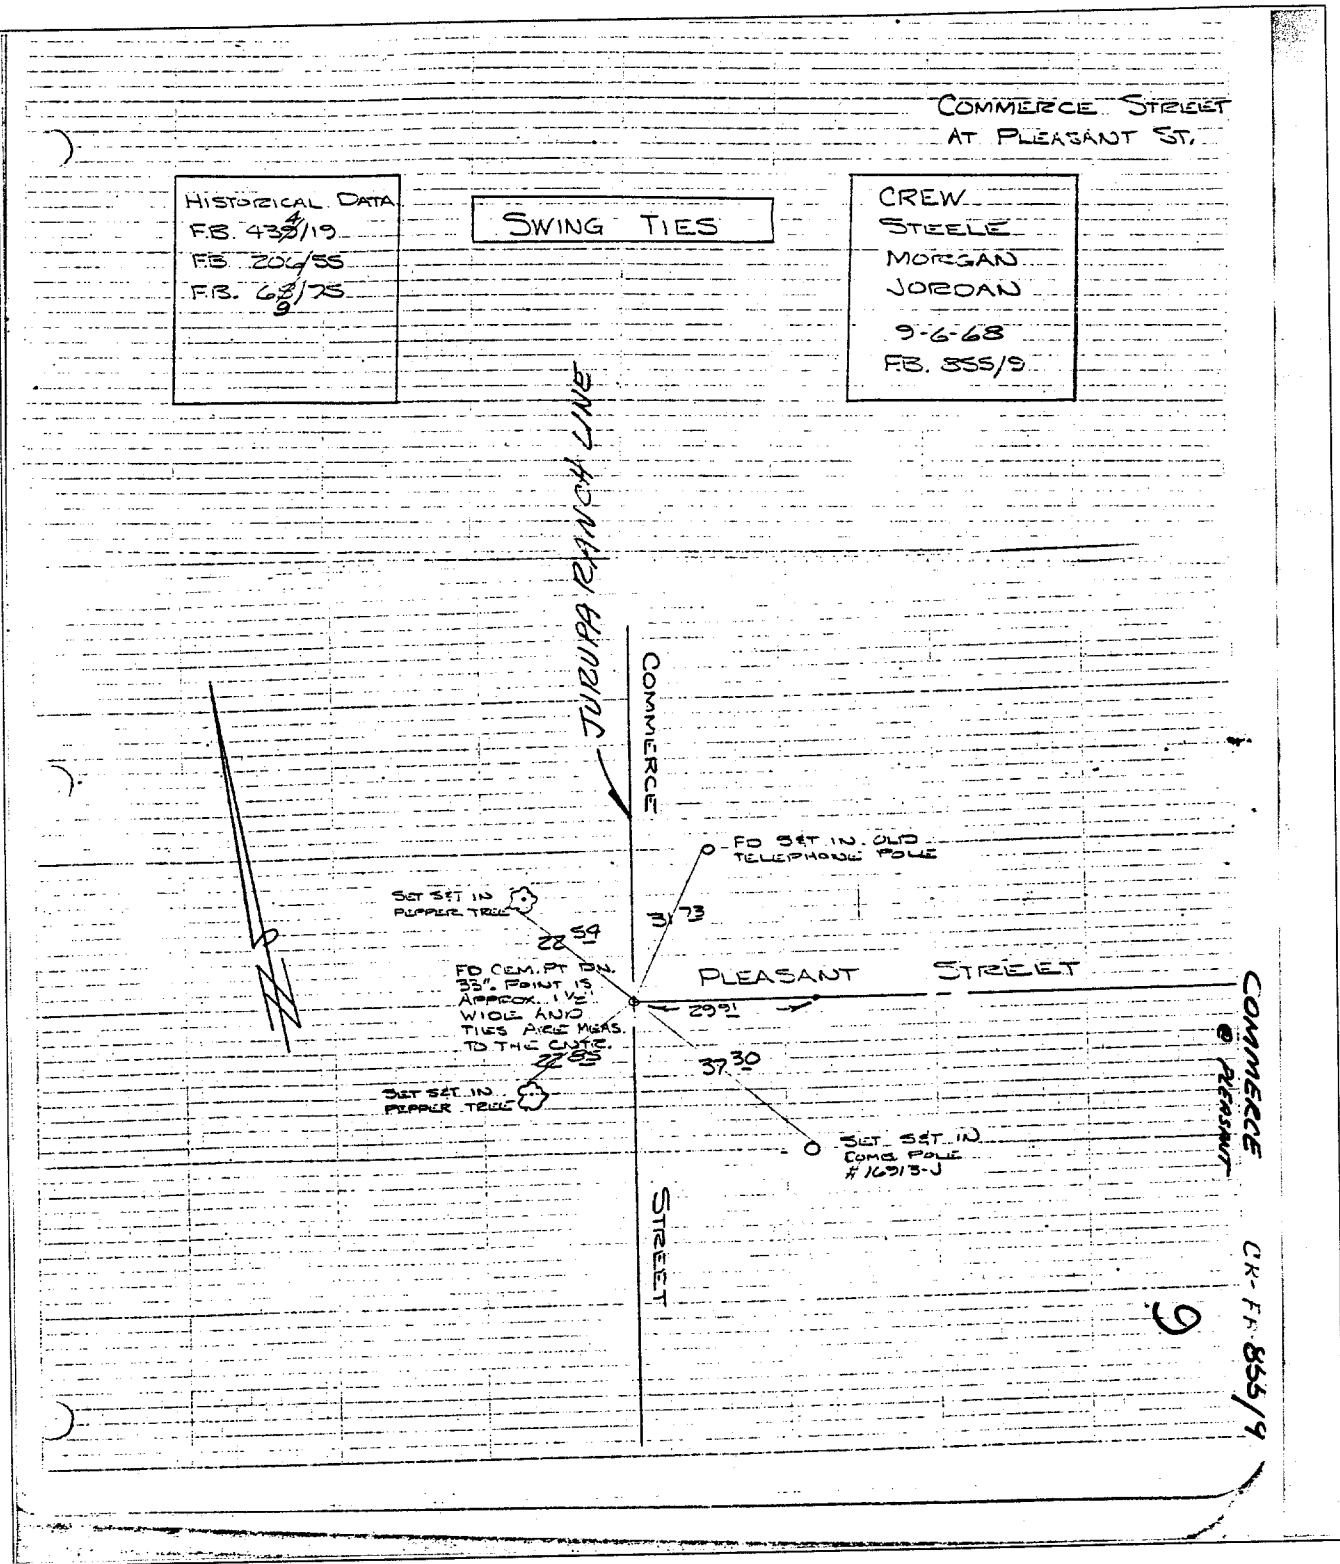 COMMERCE STREET
AT PLEASANT ST.
HISTORICAL DATA
F.B. 434/19
F.B. 206/55
F.B. 69/75
SWING TIES
CREW
STEELE
MORGAN
JORDAN
9-6-68
F.B. 855/9
JURUPA RANCH LINE
COMMERCE
FD S&T IN OLD
TELEPHONE POLE
SET S&T IN
PEPPER TREE
31 73
22 54
FD CEM. PT DN.
33". POINT IS
APPROX. 1 1/2'
WIDE AND
TIES ARE MEAS.
TO THE CNTR.
PLEASANT STREET
29 91
22 85
37 30
SET S&T IN
PEPPER TREE
SET S&T IN
COMB POLE
# 16913-J
STREET
COMMERCE
@ PLEASANT
855/9
9